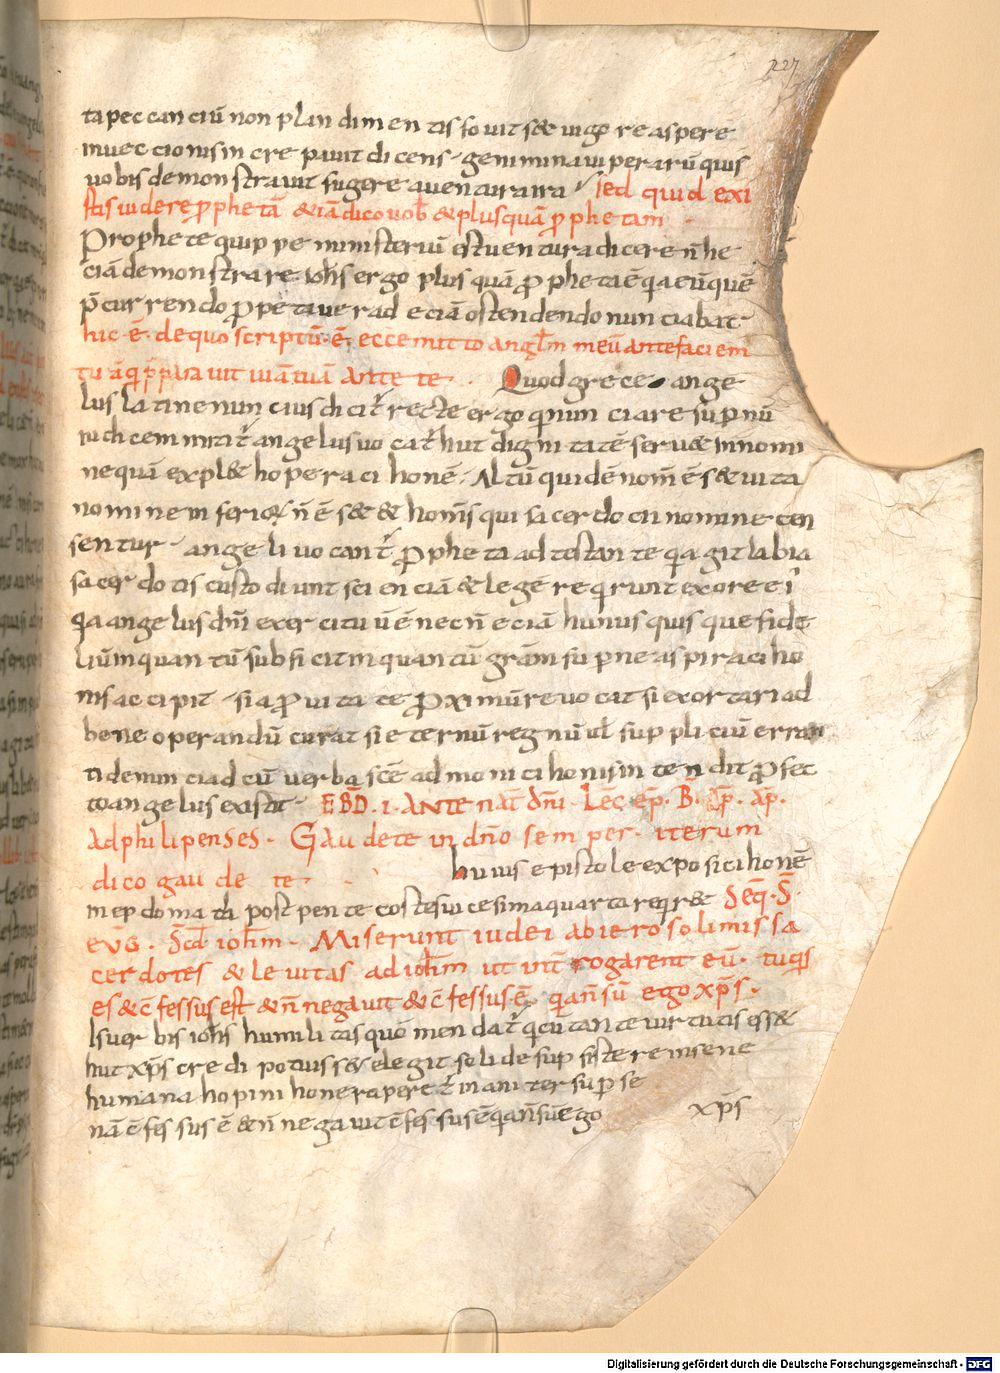 227
ta peccanciū non plandimentis fouit s& uigore aspere
inueccionis increpauit dicens genimina uiperarū quis
uobis demonstrauit fugere a uentura ira sed quid exi
stis uidere ꝓphetā &iā dico uob̄ & plus quā ꝓphetam
Prophete quippe ministeriū est uentura dicere n̄ he
ciā demonstrare ioh̄s ergo plus quā ꝓpheta ē q̇a eū quē
p̄currendo ꝓpetauerad eciā ostendendo nunciabat
hic ē de quo scriptū ē ecce mitto angl̄m meū ante faciem
tuā q̇ p̄parauit uiā tuā ante te Quod grece ange
lus latine nuncius dicit̄ recte ergo q̇ nunciare supnū
iudicem mitat̄ angelus uocat̄ hut dignitatē seru& in nomi
ne quā expl& hoperacihonē Altū quidē nom̄ ē s& uita
nomine inferior n̄ ē s& & hom̄s qui sacerdocii nomine cen
sentur angeli uocant̄ ꝓpheta adtestante q̇a git labia
sacerdotis custodiunt sciencia & legē req̇runt ex ore ei
q̇a angelus dn̄i exercituū ē nec n̄ eciā hunus quisque fide
liū inquantū subficit inquantū grām supne aspiraciho
nis accipit si a ꝓuitate ꝓximū reuocat si exortari ad
bene operandū curat si eternū regnū ul̄ suppliciū erran
ti denunciad cū uerba sc̄e admonicihonis intendit ꝓfec
to angelus existit EBD̄ I ANTE nat̄ dn̄i Lec̄ ep̄ B̄ ap̄ ap̄
ad philipenses Gaudete in dn̄o semper iterum
dico gaudete huius epistole exposicihonē
in epdomada post pentecosten uicesima quarta req̇r& Seq̄ S̄
EVḠ Scd̄ ioh̄m Miserunt iudei ab ierosolimis sa
cerdotes & leuitas ad ioh̄m ut int̄rogarent eū tu q̇s
es & c̄fessus est & n̄ negauit & c̄fessus ē q̇a n̄ sū ego xp̄s
Isuerbis ioh̄s humilitas quō mendat̄ q̇ cū tante uirtutis ess&
hut xp̄s credi potuiss& elegit solide supsistere in se ne
humana hopinihone raperet̄ inaniter sup se
nā c̄fessus ē & n̄ negauit c̄fessus ē q̇a n̄ sū ego xp̄s
Digitalisierung gefördert durch die Deutsche Forschungsgemeinschaft - DFG